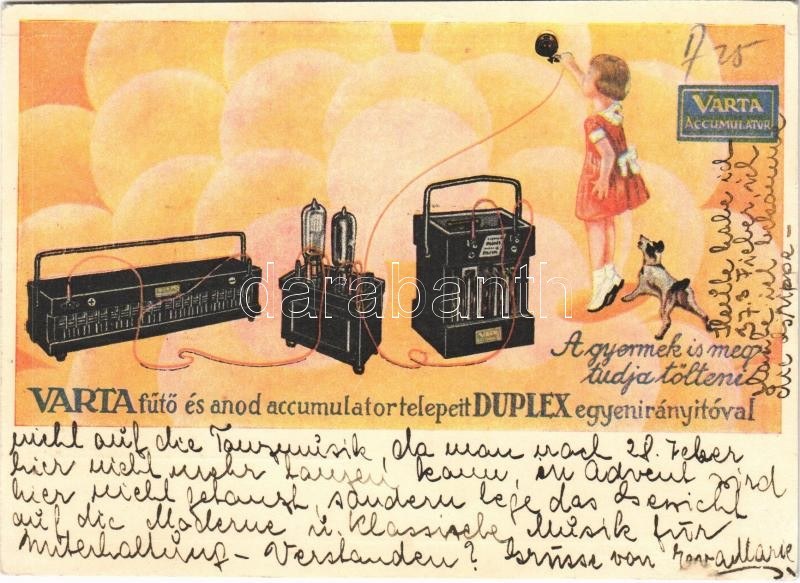 VARTA
ACCUMULATOR
A gyermek is meg
tudja tölteni
VARTA fűtő és anod accumulatortelepeit DUPLEX egyenirányitóval
darabanth
Heute habe ich
37.3 Fieber, ich
nicht auf die Tanzmusik, da man nach 28. Feber
hier nicht mehr tanzen kann, im Advent wird
hier nicht getanzt, sondern lege das Gewicht
auf die Moderne u. klassische Musik für
Unterhaltung – Verstanden? Grüsse von